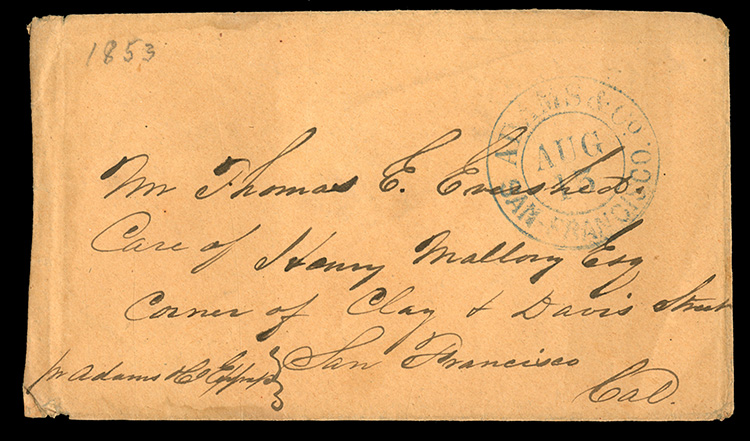 1853
ADAMS & Co.
SAN-FRANCISCO
AUG
Mr Thomas E. Evershed
Care of Henry Mallory Esq
Corner of Clay & Davis Street
San Francisco
Cal.
pr Adams & Co Express